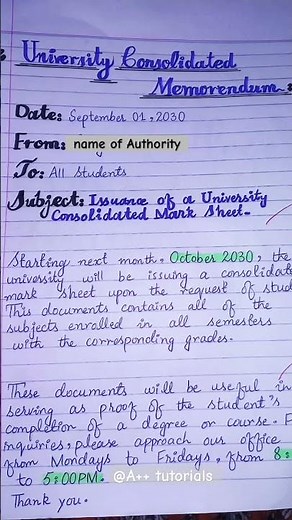 University Consolidated
Memorandum:
Date: September 01, 2030
From: name of Authority
To: All Students
Subject: Issuance of a University
Consolidated Mark Sheet.
Starting next month, October 2030, the
university will be issuing a consolidate
mark sheet upon the request of stud
This documents contains all of the
subjects enrolled in all semesters
with the corresponding grades.
These documents will be useful in
serving as proof of the student's
completion of a degree or course. F
inquiries, please approach our office
from Mondays to Fridays, from 8:
to 5:00PM. @A++ tutorials
Thank you.